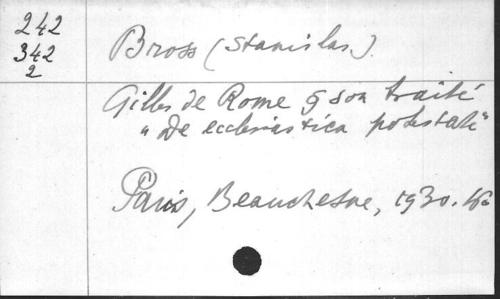 242
342
2
Bross (Stanislas).
Gilles de Rome & son traité
"De ecclesiastica potestate"
Paris, Beauchesne, 1930.